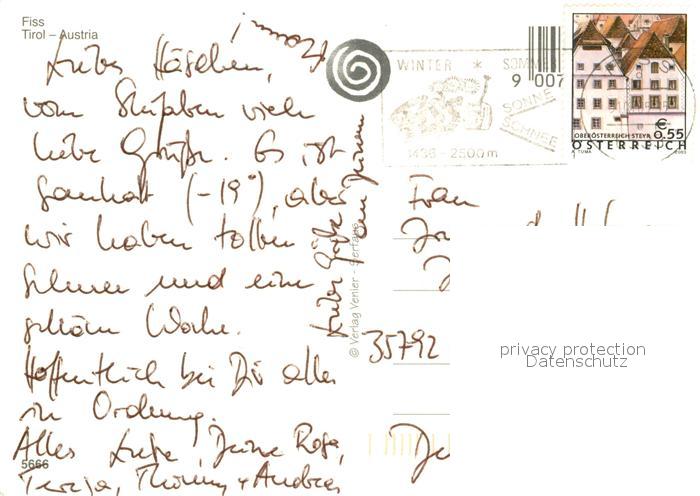 Fiss
Tirol – Austria
Liebes Häschen,
vom Skifahren viele
liebe Grüße. Es ist
saukalt (-19°), aber
wir haben tollen
Schnee und eine
schöne Woche.
Hoffentlich bei Dir alles
in Ordnung.
Alles Liebe, Deine Rosa,
Teresa, Thommy + Andreas
5666
Liebe Grüße
© Verlag Venier - Serfaus
WINTER * SOMMER
SONNE
SCHNEE
1436 - 2500 m
9 007
€ 0.55
OBERÖSTERREICH STEYR
A. TUMA
2003
ÖSTERREICH
Frau
35792
privacy protection
Datenschutz